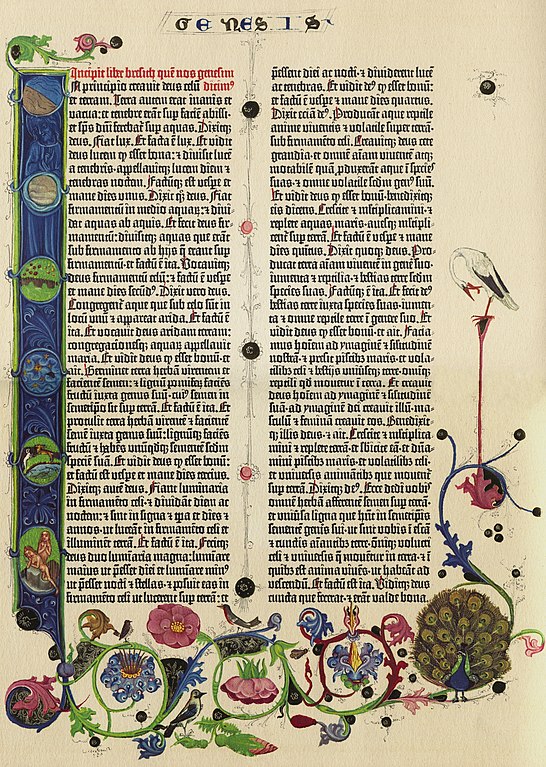 GENESIS
Incipit liber bresith quē nos genesim
In principio creavit deus celū dicim⁹
et terram. Terra autem erat inanis et
vacua: et tenebre erāt sup faciē abissi:
et sp̄s dn̄i ferebat᷑ sup aquas. Dixitq;
deus. Fiat lux. Et facta ē lux. Et vidit
deus lucem q̄ esset bona: et divisit lucē
a tenebris·appellavitq; lucem diem et
tenebras noctem. Factūq; est vespe et
mane dies unus. Dixit q̄q; deus. Fiat
firmamentū in medio aquar̄: et divi-
dat aquas ab aquis. Et fecit deus fir-
mamentū: divisitq; aquas que erāt
sub firmamento ab hijs q̄ erant sup
firmamentū: et factū ē ita. Vocavitq;
deus firmamentū celū: et factū ē vespe
et mane dies secūd⁹. Dixit vero deus.
Congregent᷑ aque que sub celo sūt in
locū unū et appareat arida. Et factū ē
ita. Et vocavit deus aridam terram:
congregacionesq; aquaꝝ appellavit
maria. Et vidit deus q̄ esset bonū·et
ait. Germinet terra herbā virentem et
facientē semen: et lignū pomiferū faciēs
fructū iuxta genus suū·cui⁹ semen in
semetipso sit sup terrā. Et factū ē ita. Et
protulit terra herbā virentē et facientē
semē iuxta genus suū: lignūq; faciēs
fructū et habēs unūqdq; sementē scd̄m
speciē suā. Et vidit deus q̄ esset bonū:
et factū est vespe et mane dies tercius.
Dixitq; autē deus. Fiant luminaria
in firmamēto celi·et dividāt diem ac
noctem: et sint in signa et tp̄a et dies et
annos: ut luceāt in firmamēto celi et
illuminēt terrā. Et factū ē ita. Fecitq;
deus duo luminaria magna: luminare
maius ut p̄esset diei et luminare min⁹
ut p̄esset nocti et stellas·et posuit eas in
firmamēto celi ut lucerent sup terrā: et
p̄essent diei ac nocti·et dividerent lucē
ac tenebras. Et vidit de⁹ q̄ esset bonū:
et factū ē vespe et mane dies quartus.
Dixit eciā de⁹. Producant aque reptile
anime viventis et volatile super terrā·
sub firmamēto celi. Creavitq; deus cete
grandia·et omnē aīam viventē atq;
motabilē quā pduxerāt aque ī species
suas·et omne volatile scd̄m gen⁹ suū.
Et vidit deus q̄ esset bonū·benedixitq;
eis dicens. Crescite et multiplicamini·et
replete aquas maris·avesq; multipli-
cent᷑ sup terrā. Et factū ē vespe et mane
dies quintus. Dixit quoq; deus. Pro-
ducat terra aīam viventē in genere suo·
iumenta et reptilia·et bestias terre scd̄m
species suas. Factūq; ē ita. Et fecit de⁹
bestias terre iuxta species suas·iumen-
ta et omne reptile terre ī genere suo. Et
vidit deus q̄ esset bonū·et ait. Facia-
mus hoīem ad ymaginē et similitudinē
nostrā·et p̄sit piscib⁹ maris·et vola-
tilib⁹ celi et bestijs universeq; terre·omniq;
reptili qd̄ movetur ī terra. Et creavit
deus hoīem ad ymaginē et similitudinē
suā·ad ymaginē dei creavit illū·ma-
sculū et feminā creavit eos. Benedixit-
q; illis deus·et ait. Crescite et multiplica-
mini et replete terrā·et subicite eā·et dn̄a-
mini piscib⁹ maris·et volatilib⁹ celi·
et universis animātib⁹ que moventur
sup terrā. Dixitq; de⁹. Ecce dedi vobis
omnē herbā afferentē semen sup terrā·
et univsa ligna que hn̄t in semetipsis
sementē genis sui·ut sint vobis ī escā·
et cunctis aīantib⁹ terre·omniq; volucri
celi et universis q̄ moventur in terra·et ī
quib⁹ est anima vivēs·ut habeant ad
vescendū. Et factū est ita. Viditq; deus
cuncta que fecerat·et erāt valde bona.